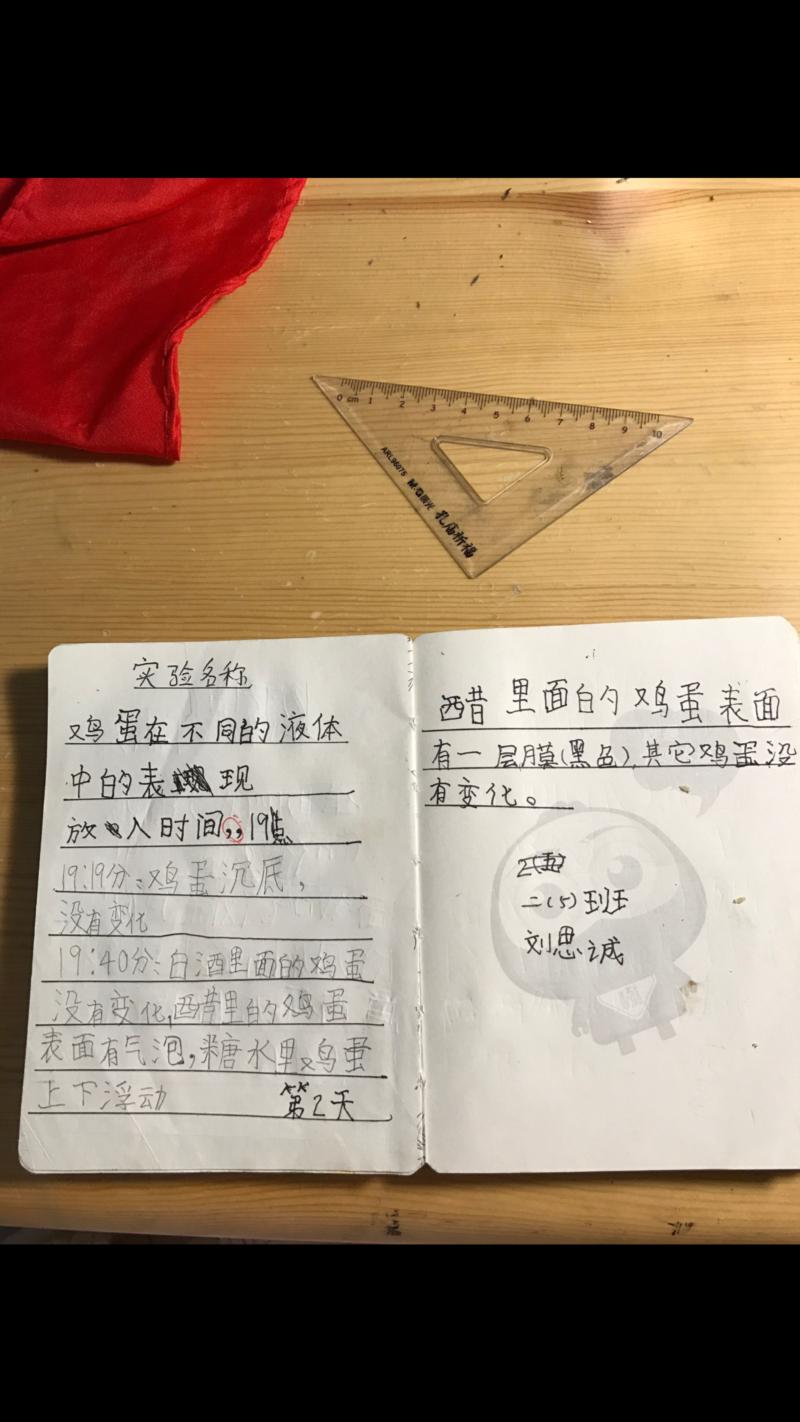 0 cm 1 2 3 4 5 6 7 8 9 10
ARL96075
孔庙祈福
实验名称
鸡蛋在不同的液体
中的表现
放入时间,,19点
19:19分:鸡蛋沉底,
没有变化
19:40分:白酒里面的鸡蛋
没有变化,西昔里的鸡蛋
表面有气泡,米糖水里鸡蛋
上下浮动 第2天
西昔里面的鸡蛋表面
有一层膜(黑色),其它鸡蛋没
有变化。
二(5)班
刘思诚